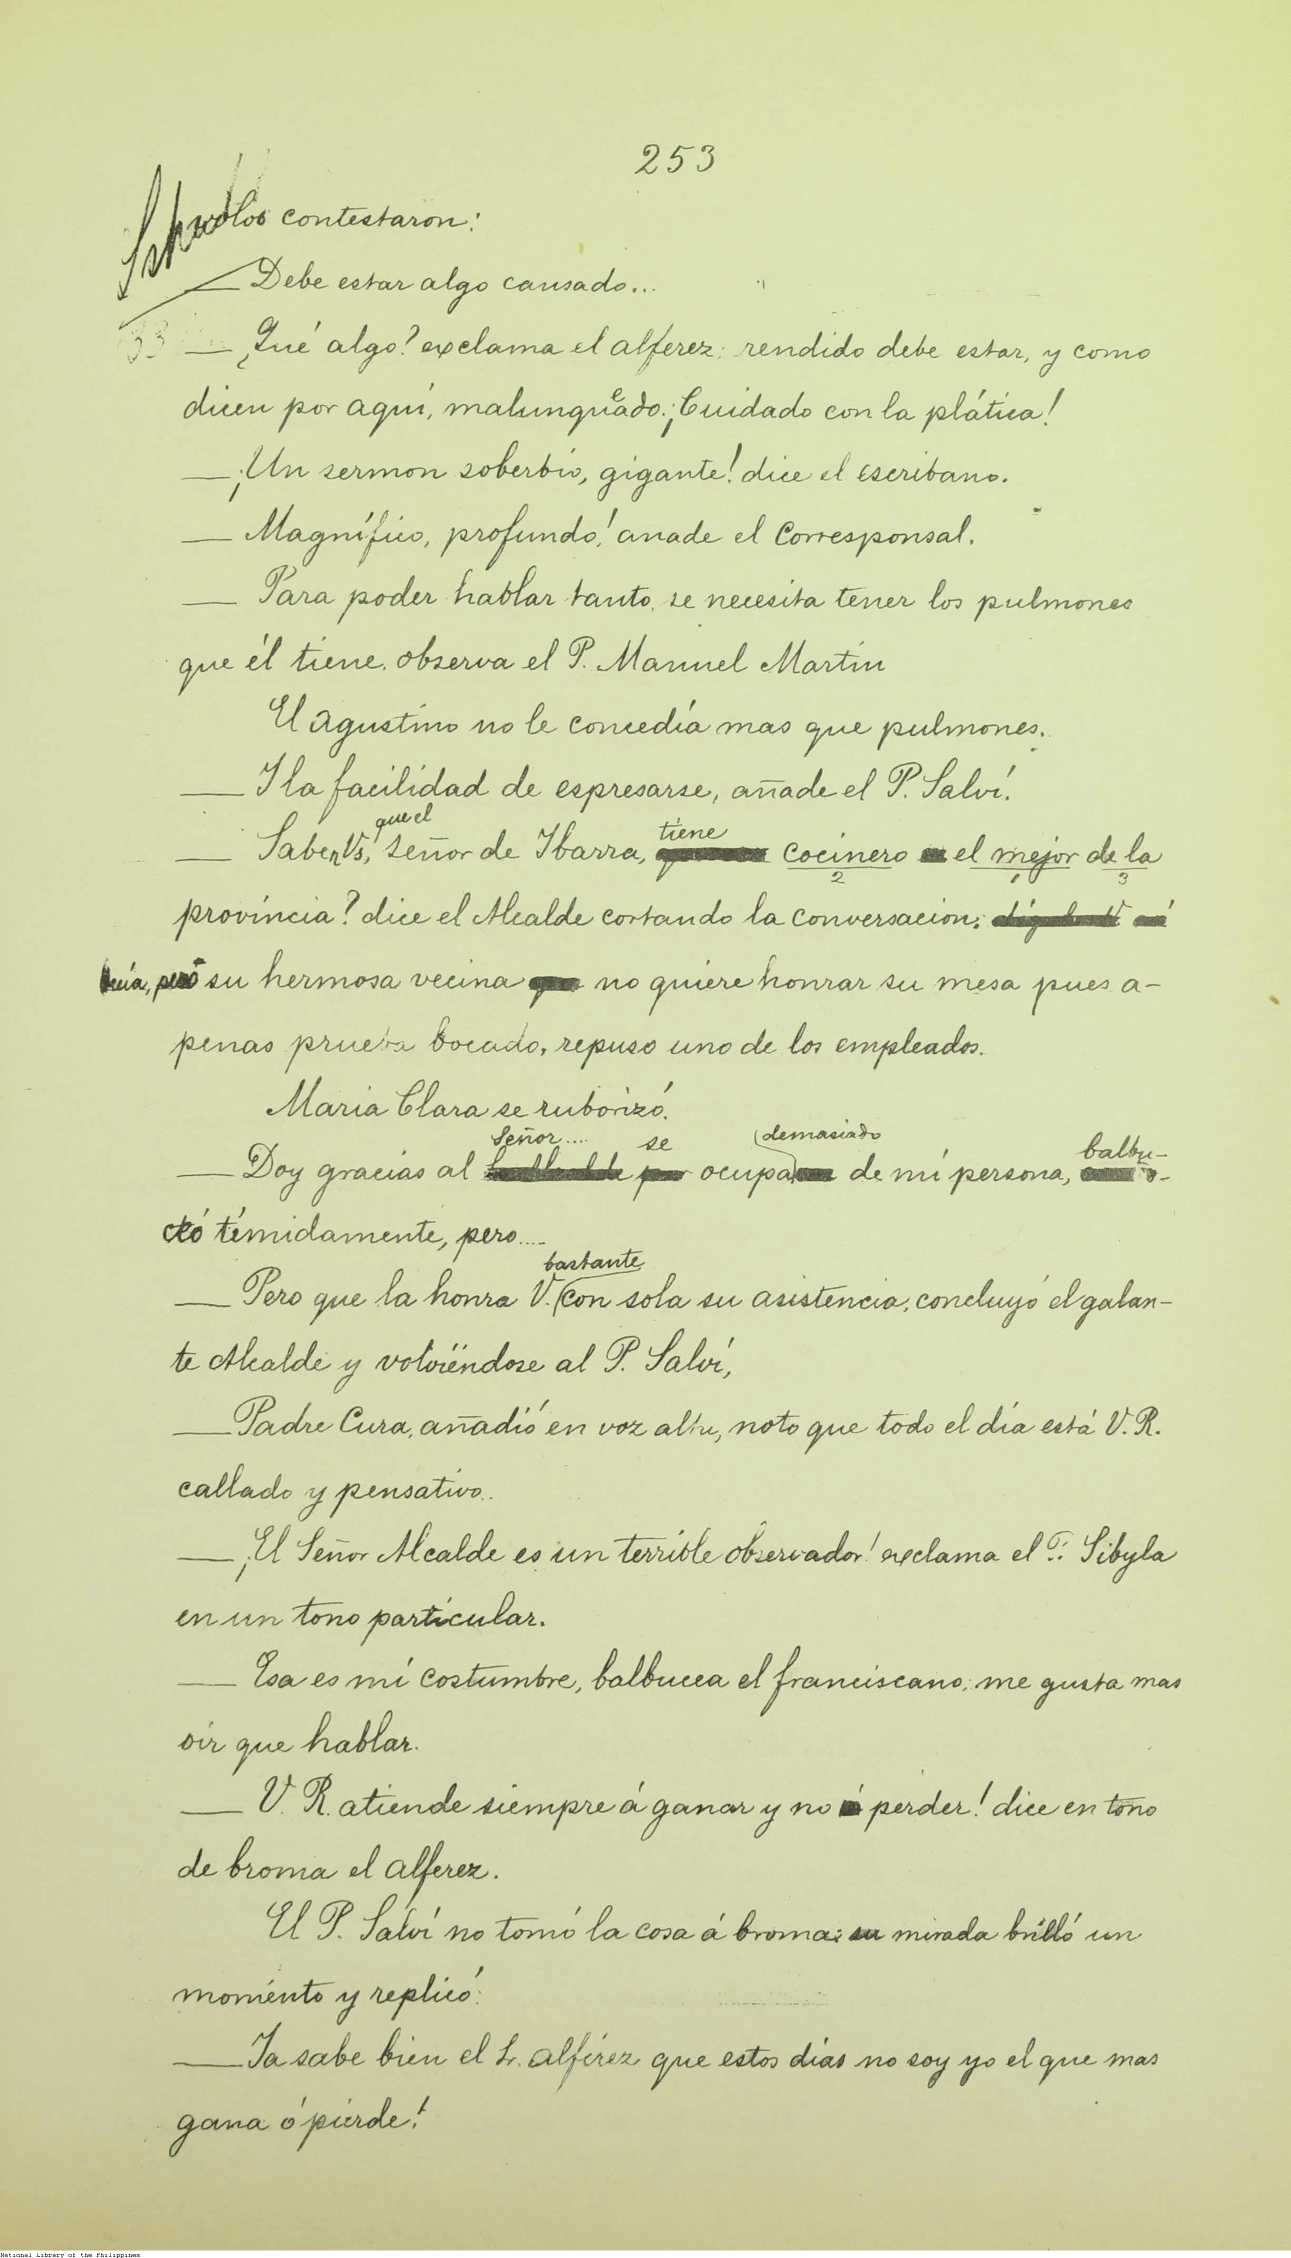 253
los contestaron:
— Debe estar algo cansado...
33 — ¿Qué algo? exclama el alferez; rendido debe estar, y como
dicen por aquí, malunqueado. ¡Cuidado con la plática!
— ¡Un sermon soberbio, gigante! dice el escribano.
— Magnífico, profundo! anade el Corresponsal.
— Para poder hablar tanto, se necesita tener los pulmones
que él tiene, observa el P. Manuel Martin
El agustino no le concedía mas que pulmones.
— Y la facilidad de espresarse, añade el P. Salví.
que el tiene
— Saben Vs, señor de Ibarra, cocinero el mejor de la
2 1 3
provincia? dice el Alcalde cortando la conversacion;
decía, pero su hermosa vecina no quiere honrar su mesa pues a-
penas prueba bocado, repuso uno de los empleados.
Maria Clara se ruborizó.
Señor.... se demasiado balbu-
— Doy gracias al ocupa de mi persona,
ceó tímidamente, pero....
bastante
— Pero que la honra V. con sola su asistencia, concluyó el galan-
te Alcalde y volviéndose al P. Salví,
— Padre Cura, añadió en voz alta, noto que todo el día está V. R.
callado y pensativo..
— ¡El Señor Alcalde es un terrible observador! exclama el P. Sibyla
en un tono particular.
— Esa es mi costumbre, balbucea el franciscano; me gusta mas
oir que hablar.
— V. R. atiende siempre á ganar y no á perder! dice en tono
de broma el alferez.
El P. Salví no tomó la cosa á broma: su mirada brilló un
momento y replicó:
— Ya sabe bien el Sr. alférez que estos días no soy yo el que mas
gana ó pierde!
National Library of the Philippines